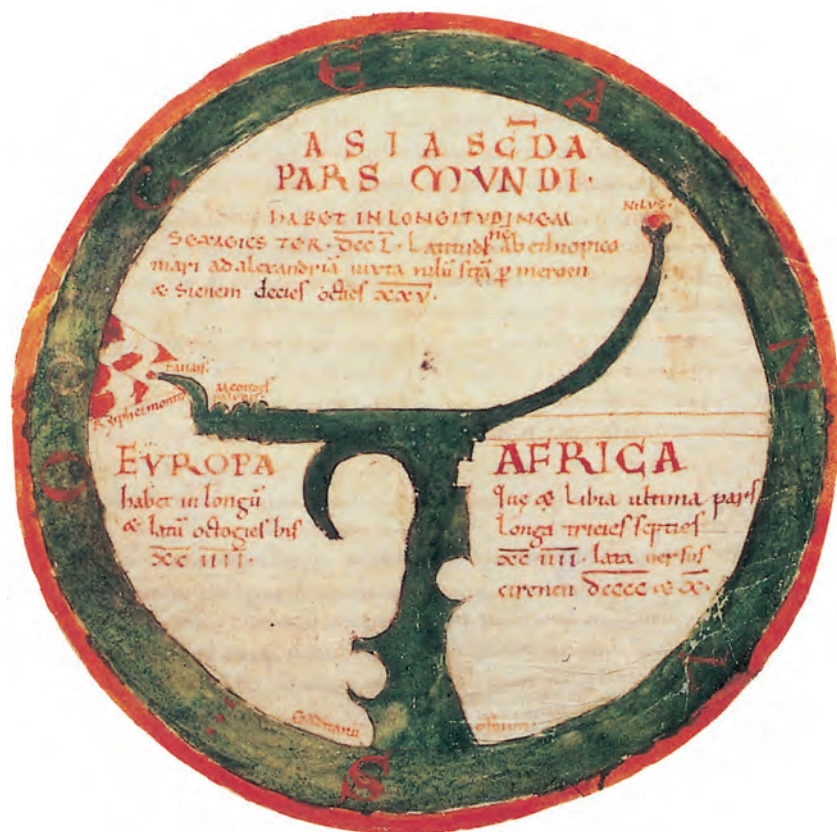 O C E A N S
ASIA SC̄DA
PARS MVNDI·
HABET IN LONGITVDINEM
NILVS·
Sexagies ter· D̅C̅C̅ L̅· Latitudine ab ethiopico
mari ad alexandriā iuxta nilū p̱ meroen
& Sienem decies octies X̅X̅V̅·
tanais·
meotides
paludes
Ryphei montes
EVROPA
habet in longū
& latū octogies bis
X̅C̅ I̅I̅I̅I̅·
AFRICA
Que & Libia ultima pars
Longa tricies septies
X̅C̅ I̅I̅I̅I̅· lata uersus
cirenen D̅C̅C̅C̅C̅ & X̅·